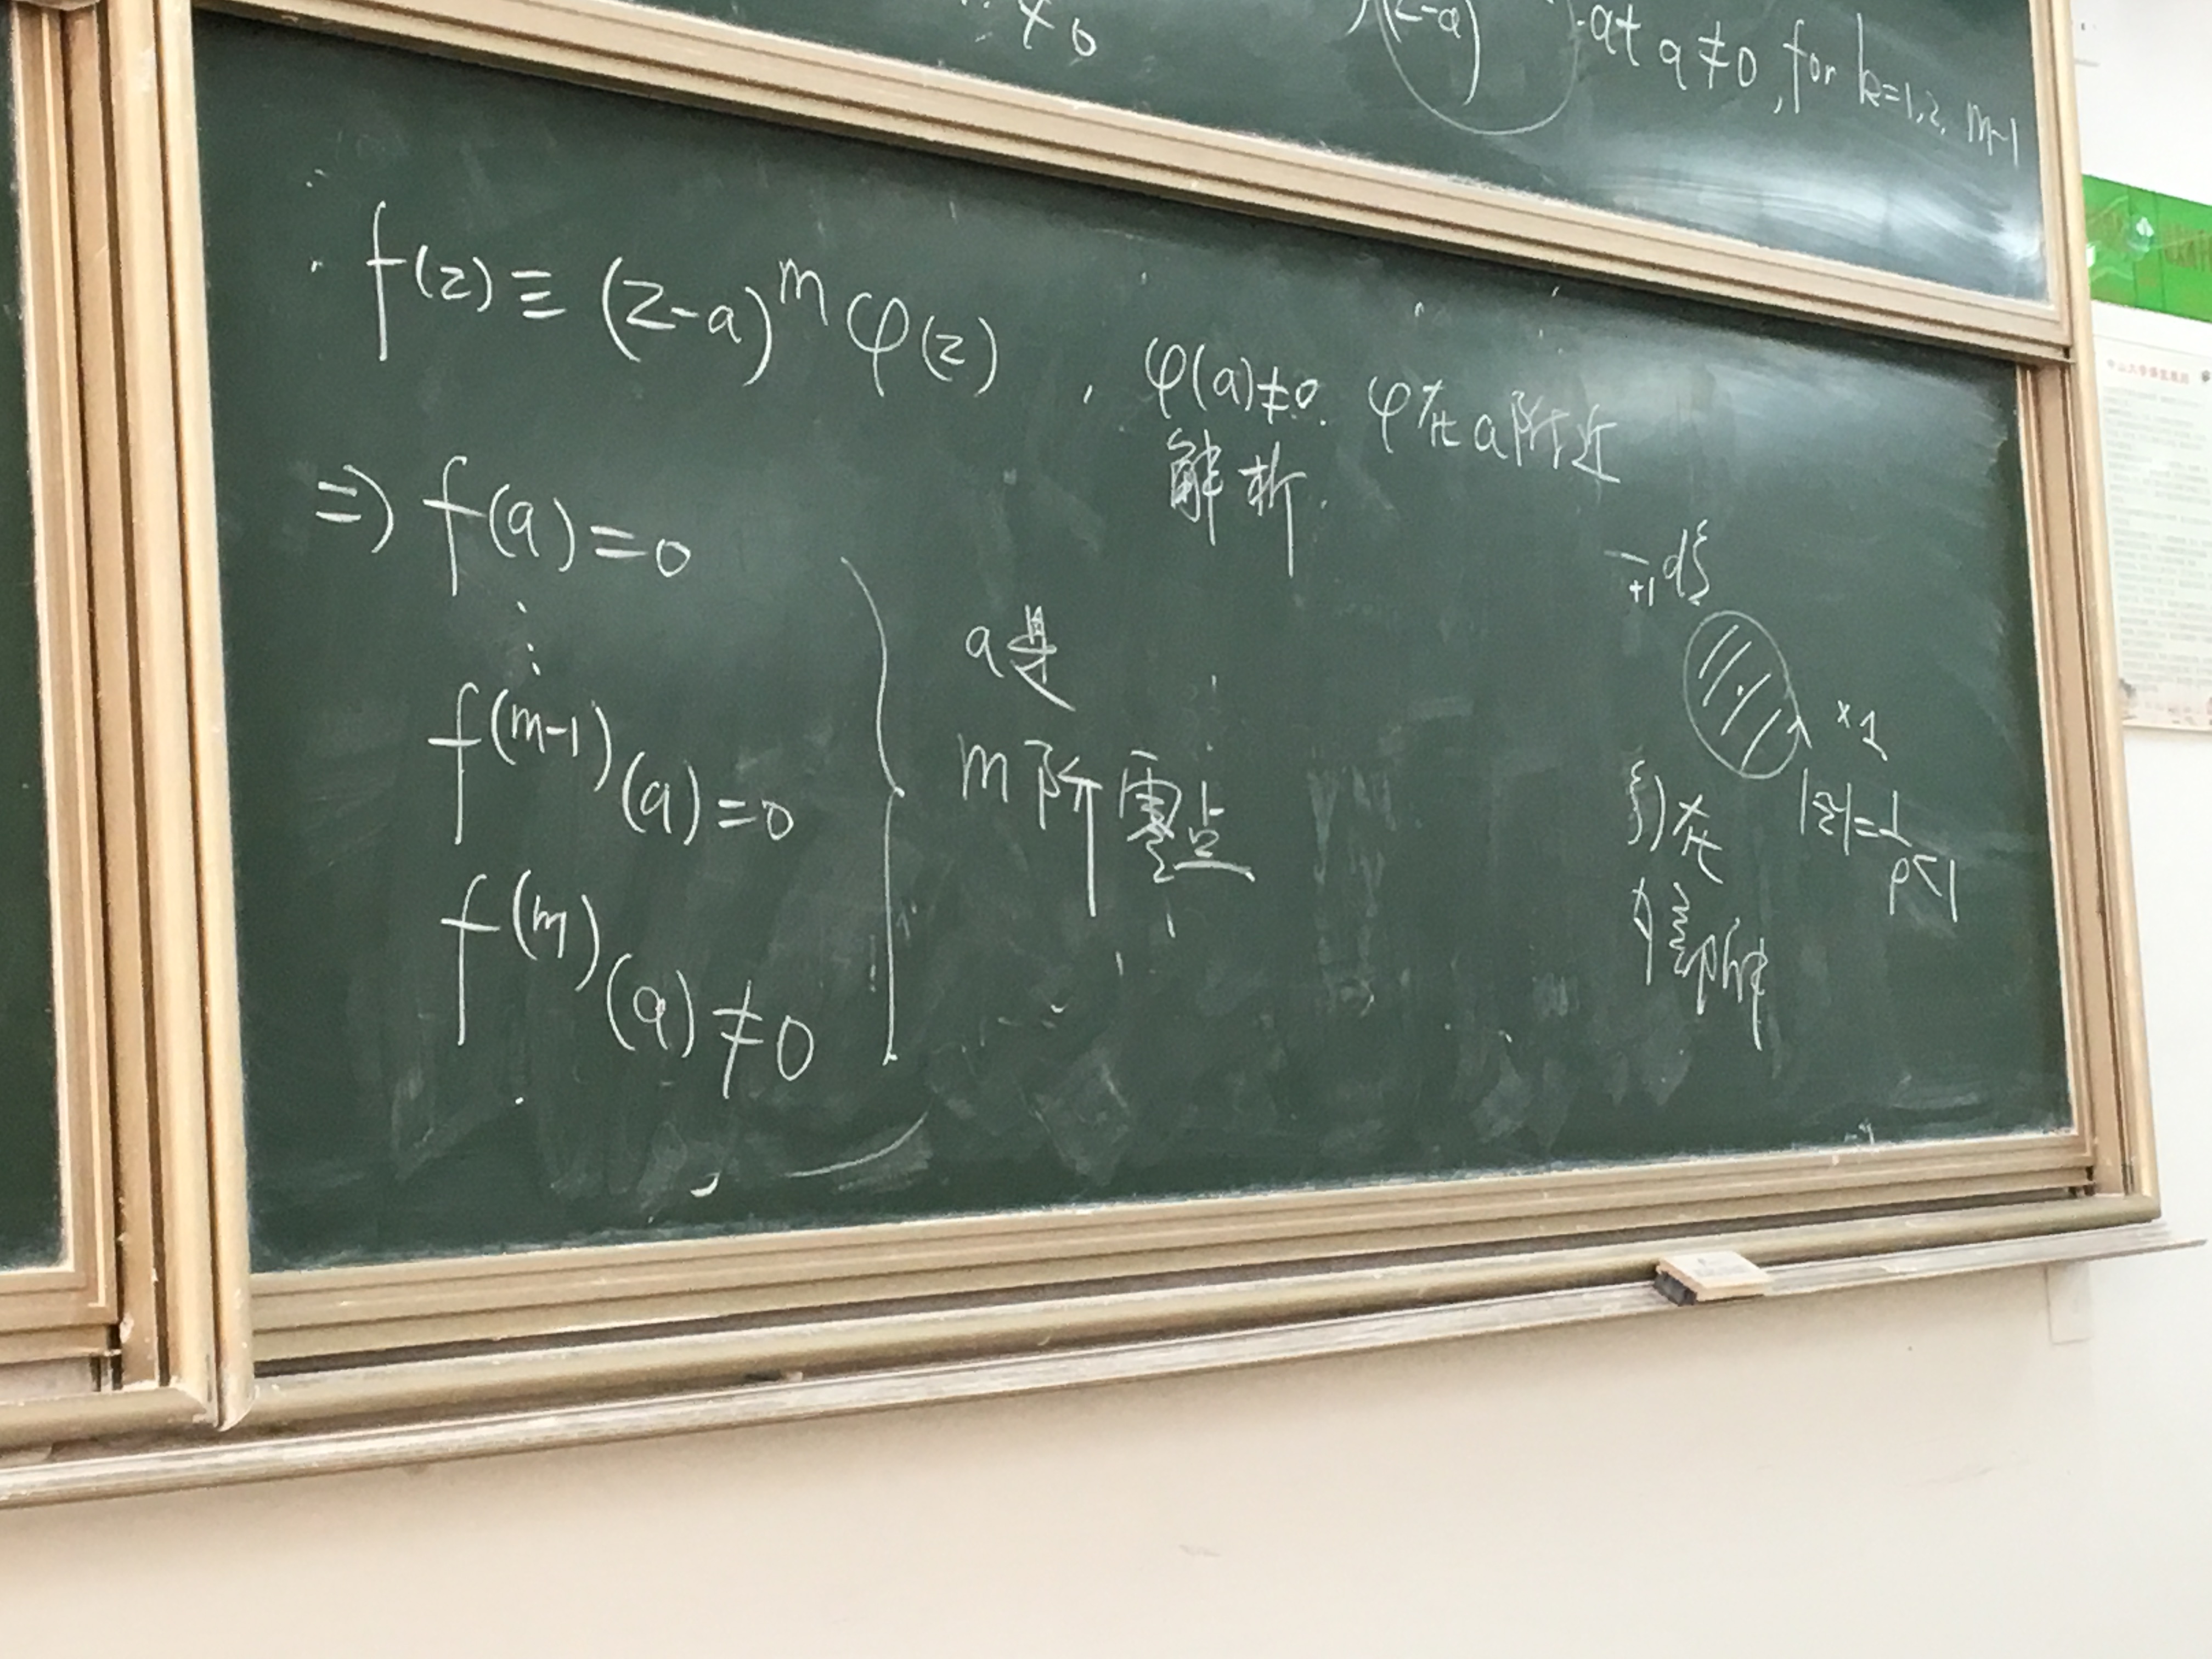 ≠0
(z-a) at a≠0, for k=1,2, m-1
f(z)≡(z-a)^m φ(z), φ(a)≠0. φ在a附近
解析.
⇒ f(a)=0
⋮
f^(m-1)(a)=0
f^(m)(a)≠0
a是
m阶零点
+1 dξ
×1
|z|=1/ρ<1
ξ)在
中山大学